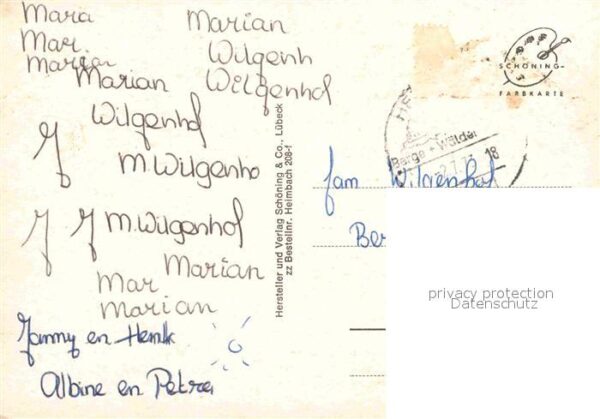 Mara
Mar.
Marian
Marian
Wilgenh
Wilgenhof
Marian
Wilgenhof
M. Wilgenho
M. Wilgenhof
Marian
Mar
Marian
en Henk
Albine en Petra
Hersteller und Verlag Schöning & Co., Lübeck
zz Bestellnr. Heimbach 208-f
SCHÖNING-
FARBKARTE
Berge + Wälder
18
fam Wilgenhof
Ber
privacy protection
Datenschutz